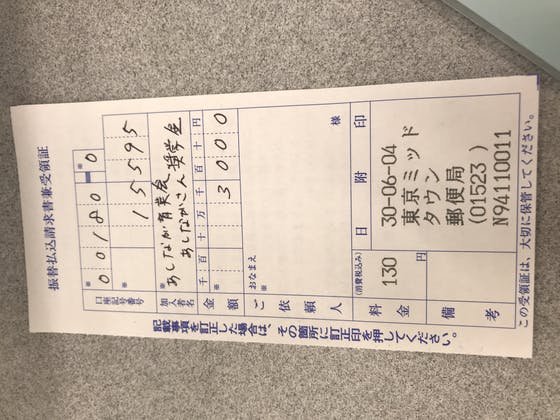 振替払込請求書兼受領証
口座記号番号
※
00180 0
※
15595
加入者名
※
あしなが育英会
あしながさん奨学金
金額
千 百 十 万 千 百 十 円
※
3000
ご依頼人
おなまえ
※
様
料金
(消費税込み)
130
円
備考
日 附 印
30-06-04
東京ミッド
タウン
郵便局
(01523 )
N94110011
この受領証は、大切に保管してください。
記載事項を訂正した場合は、その箇所に訂正印を押してください。